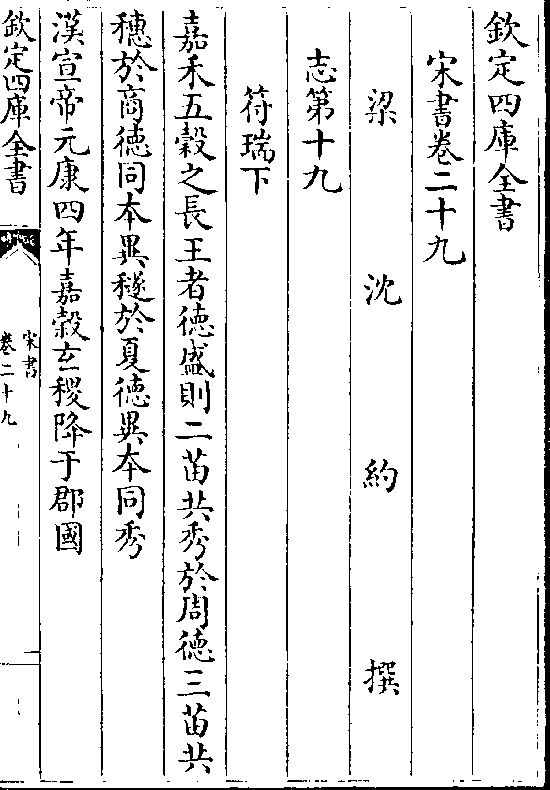 欽定四庫全書
宋書卷二十九
梁沈約撰
志第十九
符瑞下
嘉禾五穀之長王者德盛則二苗共秀於周德三苗共
穗於商德同本異穟於夏德異本同秀
漢宣帝元康四年嘉穀玄稷降于郡國
欽定四庫全書
宋書
卷二十九